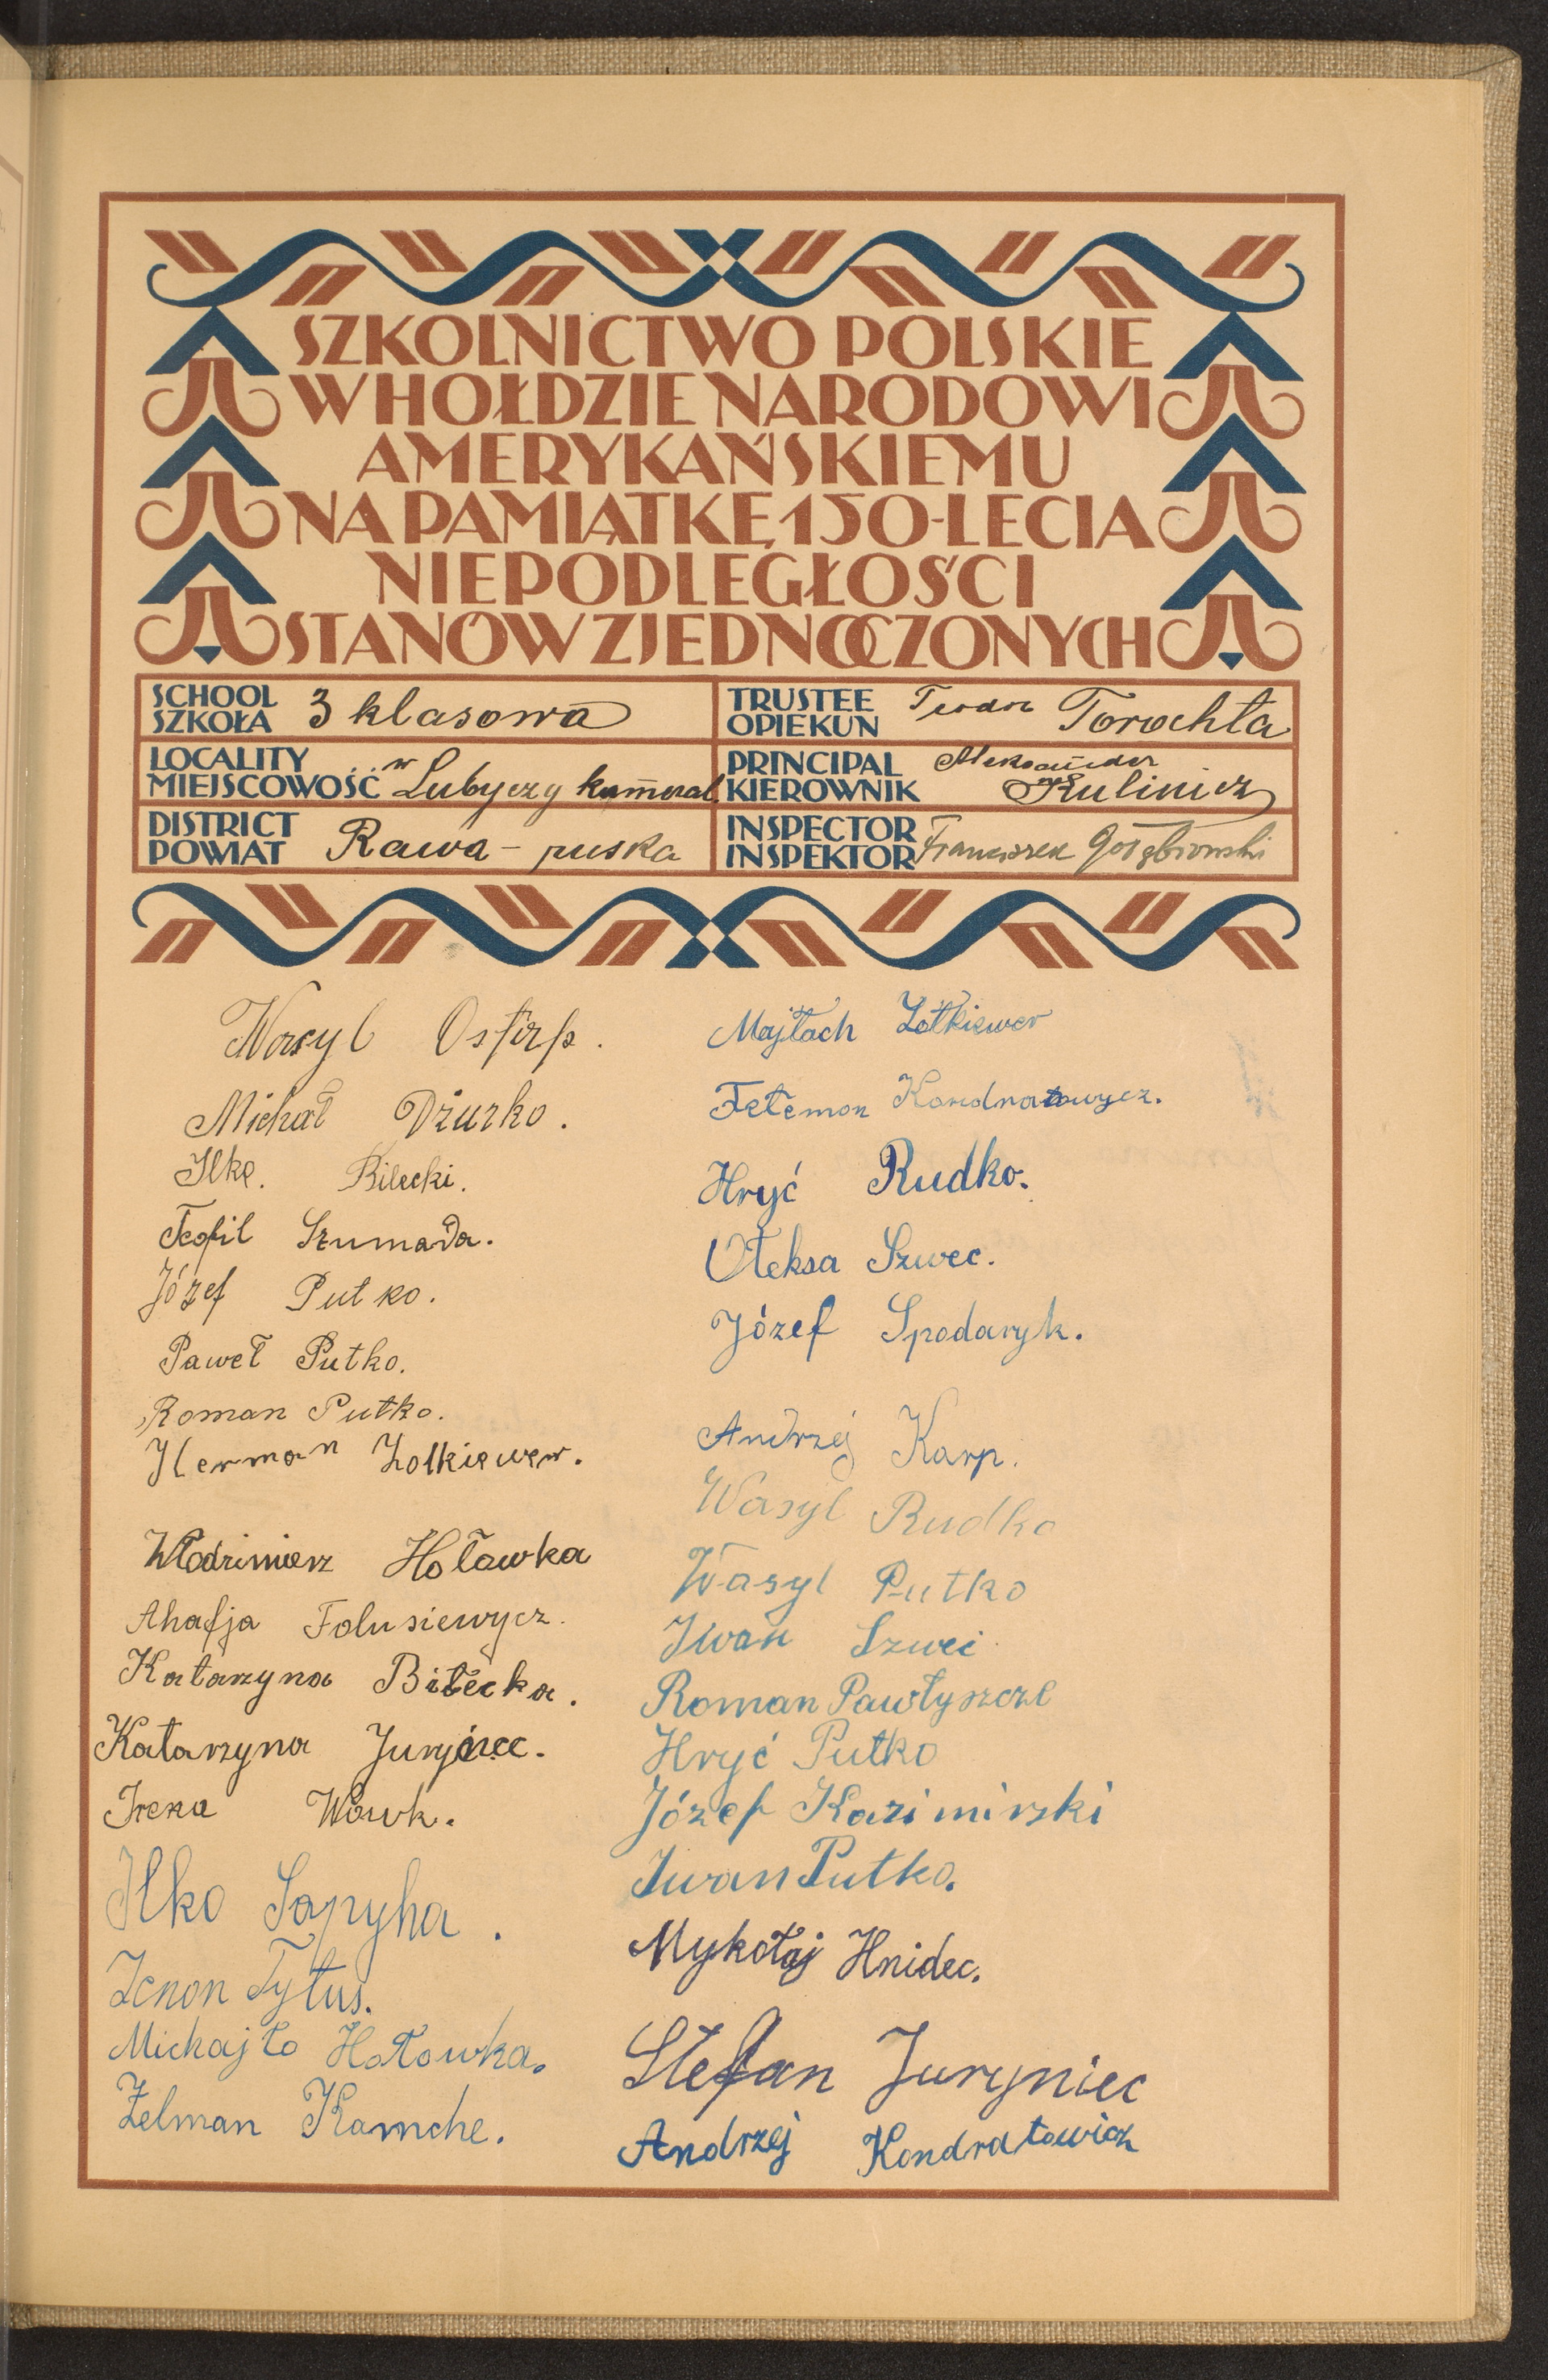 SZKOLNICTWO POLSKIE
W HOŁDZIE NARODOWI
AMERYKAŃSKIEMU
NA PAMIĄTKĘ 150-LECIA
NIEPODLEGŁOŚCI
STANÓW ZJEDNOCZONYCH
SCHOOL
SZKOŁA 3 klasowa
LOCALITY
MIEJSCOWOŚĆ w Lubyczy kameral.
DISTRICT
POWIAT Rawa - ruska
TRUSTEE
OPIEKUN Teodor Torochta
PRINCIPAL
KIEROWNIK Aleksander Kulinicz
INSPECTOR
INSPEKTOR Franciszek Gołębiowski
Wasyl
Michał Dżurko.
Ilko. Bilecki.
Teofil Szumada.
Józef Putko.
Paweł Putko.
Roman Putko.
Herman Zolkiewer.
Włodzimierz Hoławka
Ahafja Folusiewycz.
Katarzyna Biłecka.
Katarzyna Juryniec.
Irena Wowk.
Ilko Sapyha.
Zenon Tytus.
Michajło Hołowka.
Zelman Kamche.
Majłach
Kondratowycz.
Hryć Rudko.
Ołeksa Szwec.
Józef Spodaryk.
Andrzej Karp.
Wasyl Rudko
Wasyl Putko
Iwan Szwec
Roman Pawłyszcze
Hryć Putko
Józef Kazimirski
Iwan Putko.
Mykołaj Hnidec.
Stefan Juryniec
Andrzej Kondratowicz